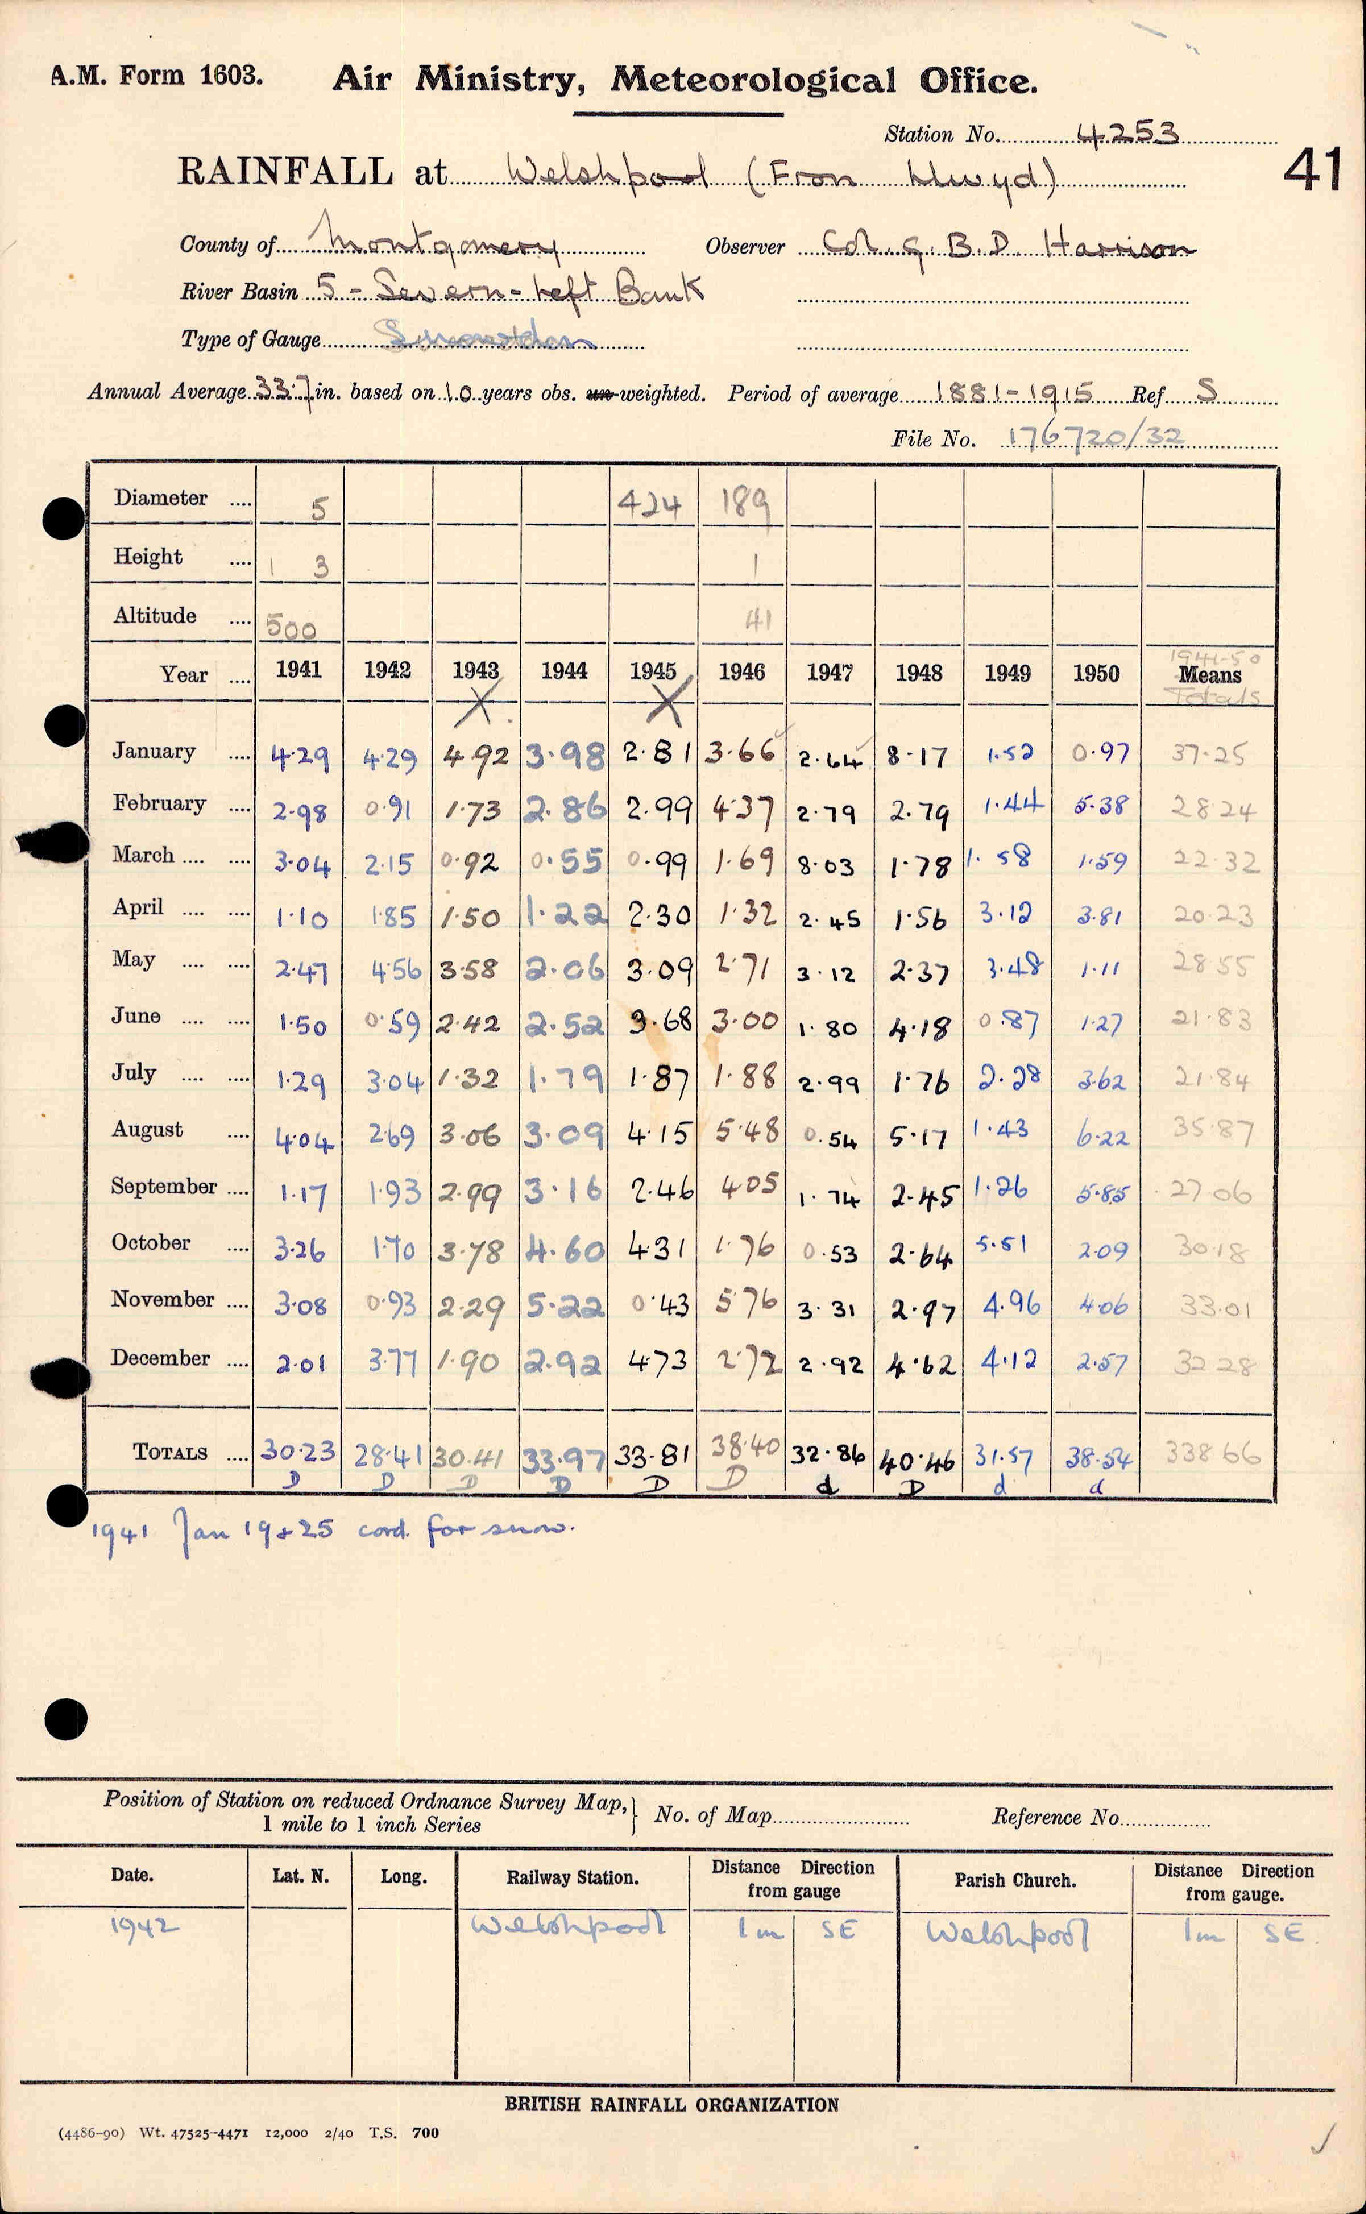 A.M. Form 1603. Air Ministry, Meteorological Office.
Station No. 4253
41
RAINFALL at Welshpool (Fron Llwyd)
County of Montgomery Observer Col. G. B. D. Harrison
River Basin 5 - Severn - Left Bank
Type of Gauge Snowdon
Annual Average 33.7 in. based on 10 years obs. un-weighted. Period of average 1881-1915 Ref S
File No. 176720/32
Diameter .... 5 424 189
Height .... 1 3 1
Altitude .... 500 41
1941-50
Year .... 1941 1942 1943 1944 1945 1946 1947 1948 1949 1950 Means
Totals
X X
January .... 4.29 4.29 4.92 3.98 2.81 3.66 2.64 8.17 1.52 0.97 37.25
February .... 2.98 0.91 1.73 2.86 2.99 4.37 2.79 2.79 1.44 5.38 28.24
March .... .... 3.04 2.15 0.92 0.55 0.99 1.69 8.03 1.78 1.58 1.59 22.32
April .... .... 1.10 1.85 1.50 1.22 2.30 1.32 2.45 1.56 3.12 3.81 20.23
May .... .... 2.47 4.56 3.58 2.06 3.09 2.71 3.12 2.37 3.48 1.11 28.55
June .... .... 1.50 0.59 2.42 2.52 3.68 3.00 1.80 4.18 0.87 1.27 21.83
July .... .... 1.29 3.04 1.32 1.79 1.87 1.88 2.99 1.76 2.28 3.62 21.84
August .... 4.04 2.69 3.06 3.09 4.15 5.48 0.54 5.17 1.43 6.22 35.87
September .... 1.17 1.93 2.99 3.16 2.46 4.05 1.74 2.45 1.26 5.85 27.06
October .... 3.26 1.70 3.78 4.60 4.31 1.76 0.53 2.64 5.51 2.09 30.18
November .... 3.08 0.93 2.29 5.22 0.43 5.76 3.31 2.97 4.96 4.06 33.01
December .... 2.01 3.77 1.90 2.92 4.73 2.72 2.92 4.62 4.12 2.57 32.28
TOTALS .... 30.23 28.41 30.41 33.97 33.81 38.40 32.86 40.46 31.57 38.54 338.66
D D D D D D d D d d
1941 Jan 19 + 25 cord. for snow.
Position of Station on reduced Ordnance Survey Map, } No. of Map Reference No.
1 mile to 1 inch Series
Date. Lat. N. Long. Railway Station. Distance Direction from gauge Parish Church. Distance Direction from gauge.
1942 Welshpool 1m SE Welshpool 1m SE.
BRITISH RAINFALL ORGANIZATION
(4486-90) Wt. 47525-4471 12,000 2/40 T.S. 700